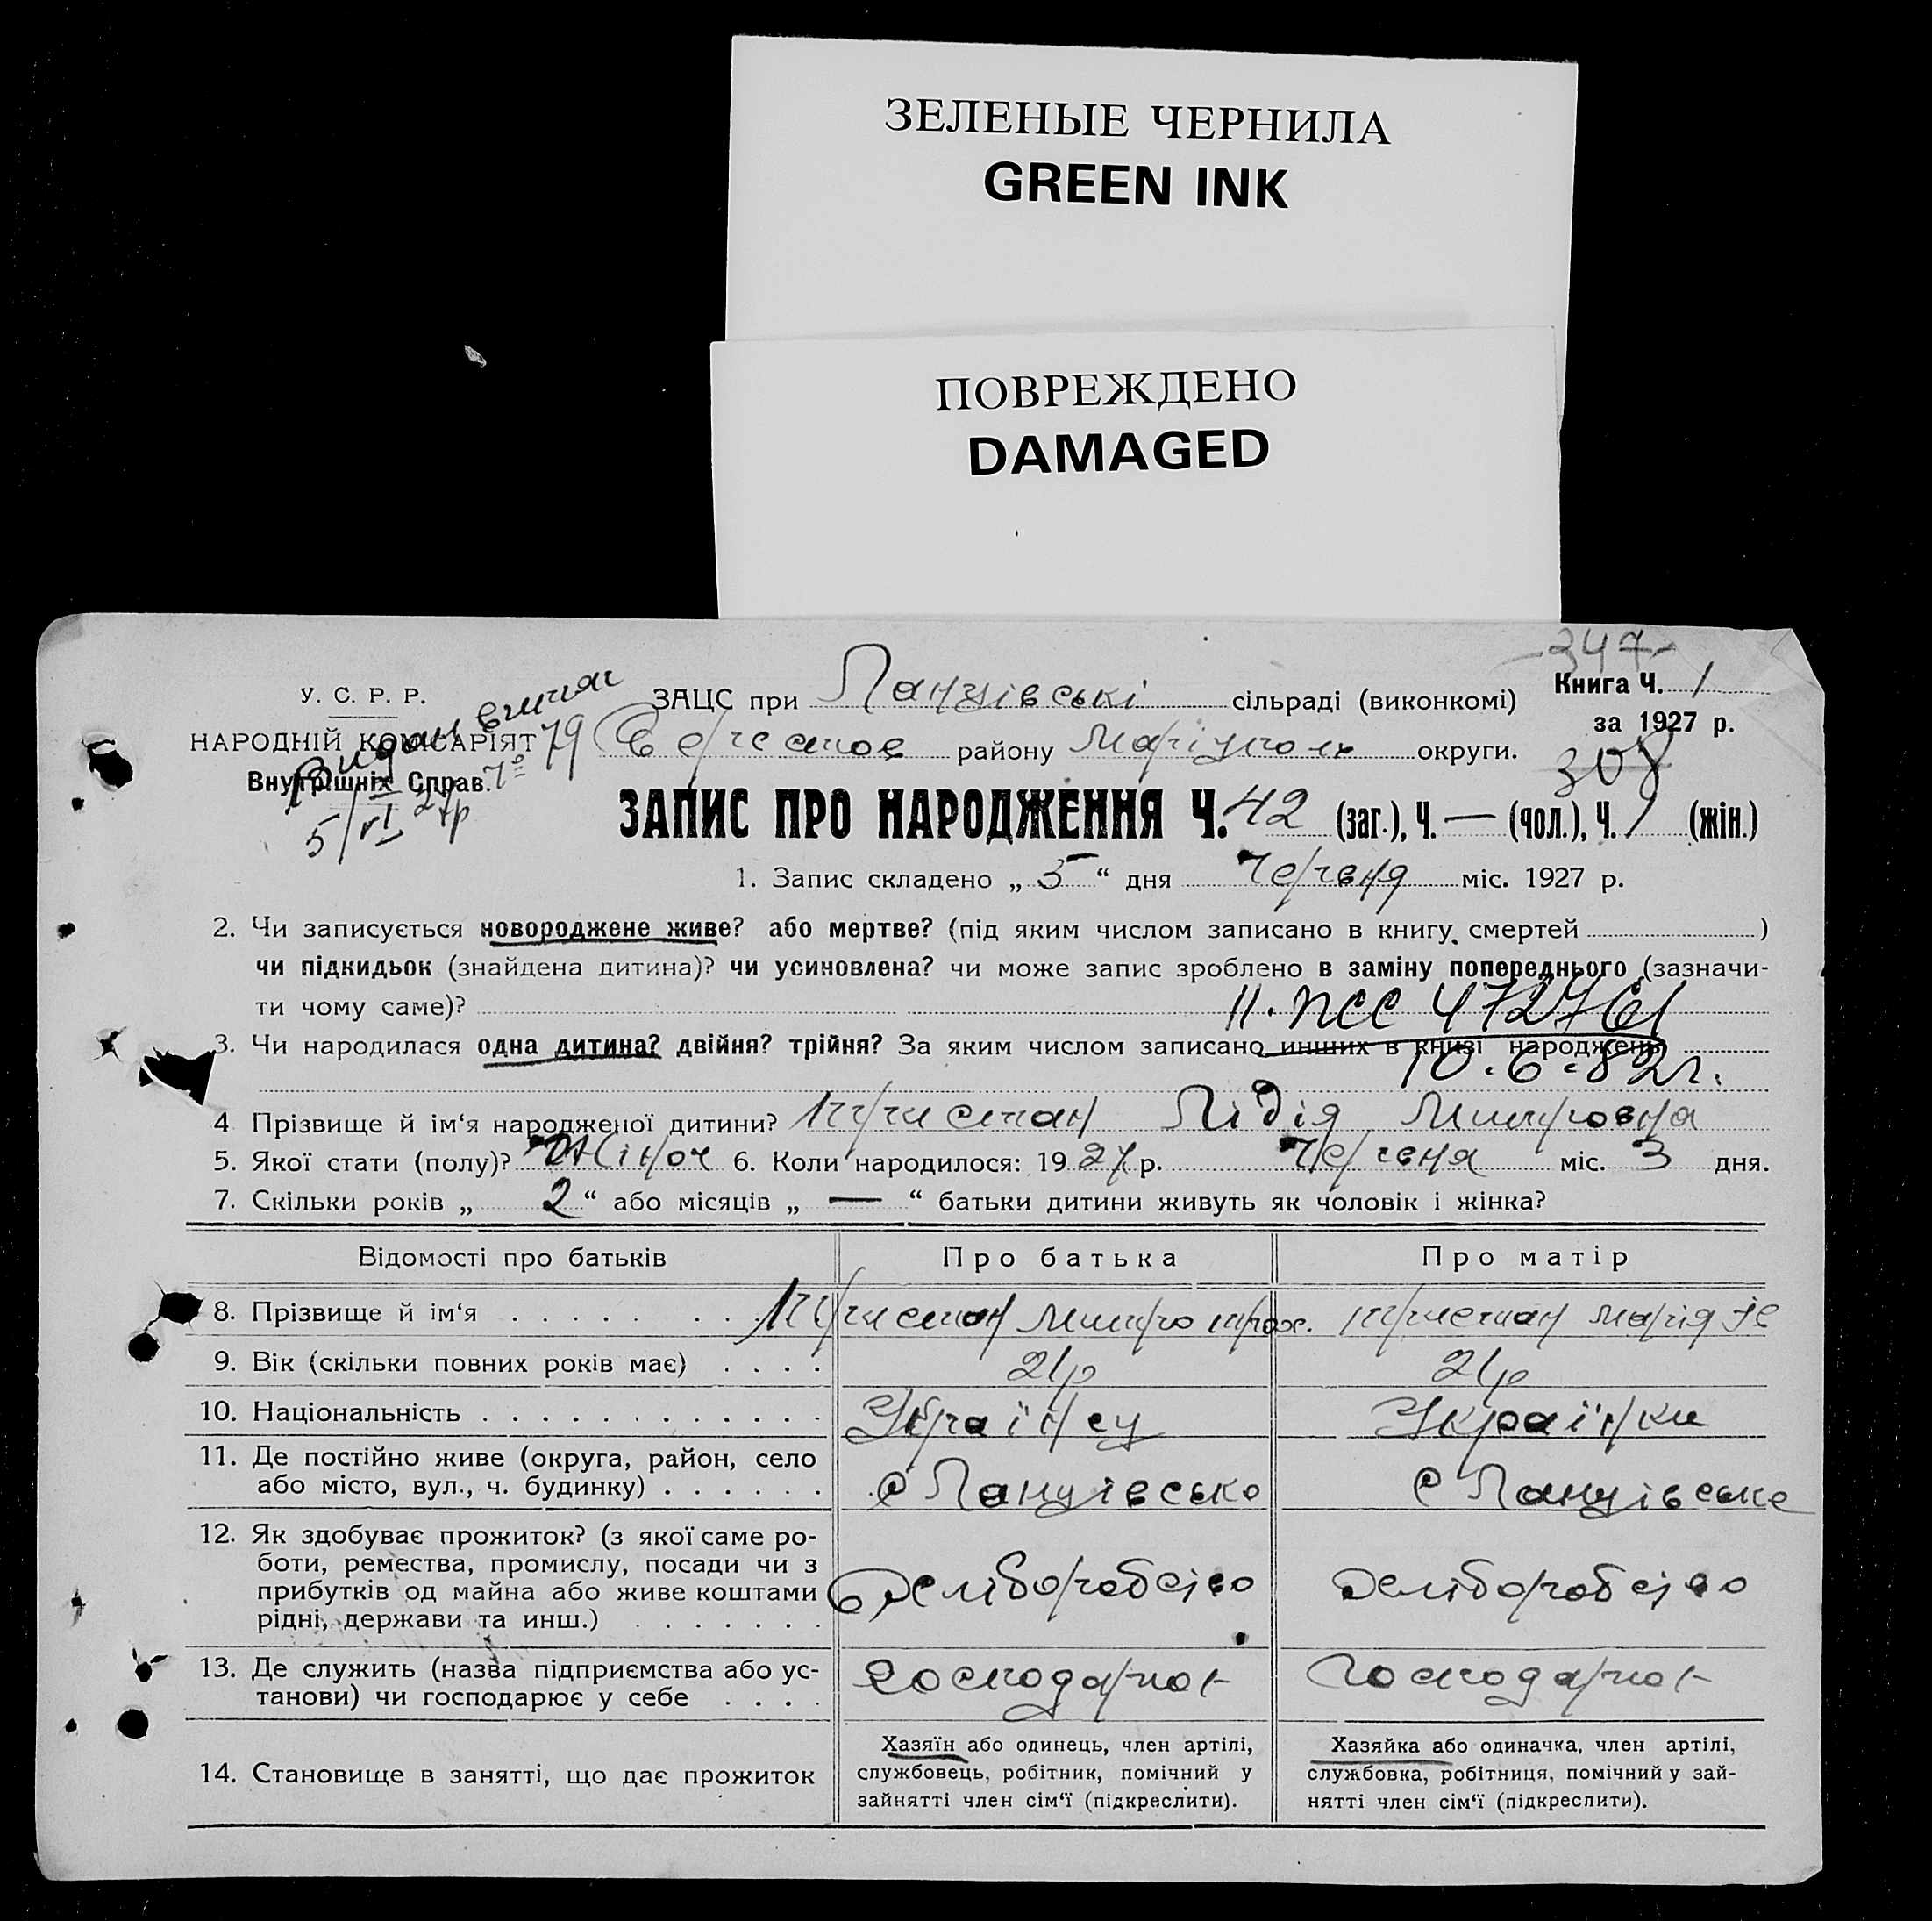 ЗЕЛЕНЫЕ ЧЕРНИЛА
GREEN INK
ПОВРЕЖДЕНО
DAMAGED
-347-
У. С. Р. Р.
НАРОДНІЙ КОМІСАРІЯТ
Внутрішніх Справ.
Видан витяг
79
5/VI 27р
ЗАЦС при Ланцівські сільраді (виконкомі)
Книга Ч. 1
району Маріуполь округи.
за 1927 р.
308
ЗАПИС ПРО НАРОДЖЕННЯ Ч. 42 (заг.), Ч. — (чол.), Ч. 1 (жін.)
1. Запис складено „ 5 “ дня Червня міс. 1927 р.
2. Чи записується новороджене живе? або мертве? (під яким числом записано в книгу смертей )
чи підкидьок (знайдена дитина)? чи усиновлена? чи може запис зроблено в заміну попереднього (зазначи-
ти чому саме)?
472761
3. Чи народилася одна дитина? двійня? трійня? За яким числом записано инших в книзі народжень
10.6.82г.
4 Прізвище й ім‘я народженої дитини? Тристан Лідія Митровна
5. Якої стати (полу)? Жіноч 6. Коли народилося: 1927 р. Червня міс. 3 дня.
7. Скільки років „ 2 “ або місяців „ — “ батьки дитини живуть як чоловік і жінка?
Відомості про батьків Про батька Про матір
8. Прізвище й ім‘я Тристан Митро Тристан Марія
9. Вік (скільки повних років має) 21р 21р
10. Національність Українец Українки
11. Де постійно живе (округа, район, село
або місто, вул., ч. будинку) с Ланцівсько с Ланцівське
12. Як здобуває прожиток? (з якої саме ро-
боти, ремества, промислу, посади чи з
прибутків од майна або живе коштами
рідні, держави та инш.) хліборобство хліборобство
13. Де служить (назва підприємства або ус-
танови) чи господарює у себе господарює господарює
14. Становище в занятті, що дає прожиток
Хазяїн або одинець, член артілі,
службовець, робітник, помічний у
зайнятті член сім‘ї (підкреслити).
Хазяйка або одиначка, член артілі,
службовка, робітниця, помічний у зай-
нятті член сім‘ї (підкреслити).